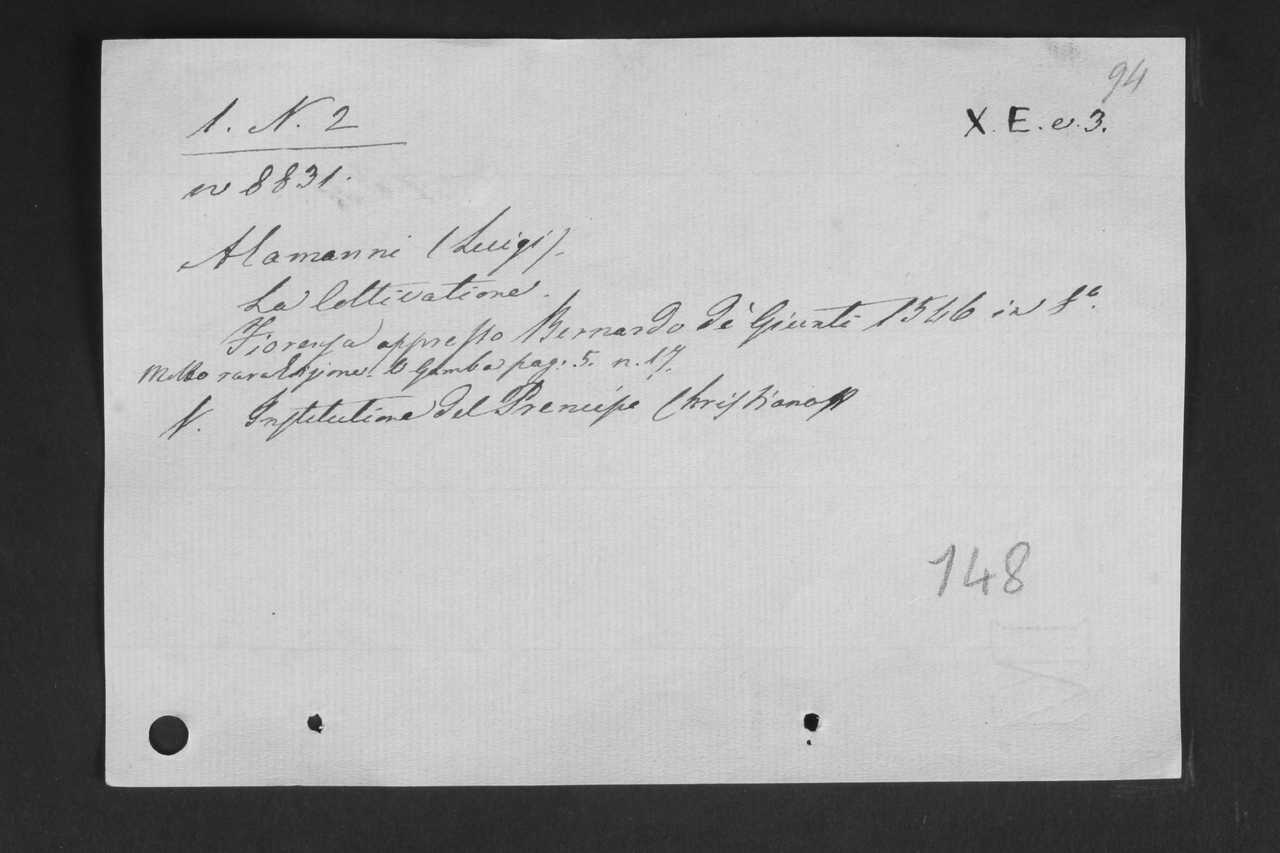 94
1. N. 2
X. E. e. 3.
n 8831.
Alamanni (Luigi).
La Coltivatione.
Fiorenza appresso Bernardo de' Giunti 1546 in 8º.
Molto rara edizione. Gamba pag. 5. n. 17.
V. Institutione del Prencipe Christiano
148
VI